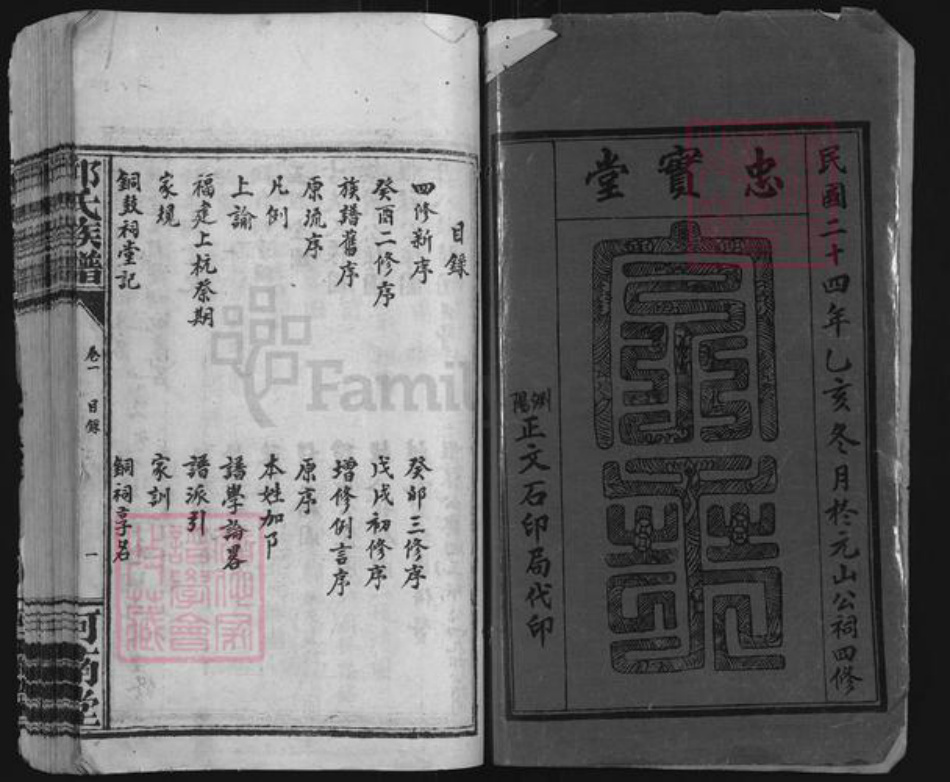 忠實堂
民國二十四年乙亥冬月於元山公祠四修
家乘
瀏陽正文石印局代印
目錄
四修新序
癸卯三修序
癸酉二修序
戊戌初修序
族譜舊序
增修例言序
原流序
原序
凡例
本姓加阝
上諭
譜學論畧
福建上杭祭期
譜派引
家規
家訓
銅鼓祠堂記
銅祠享名
氏族譜
卷一 目錄
一
河南堂
Famil